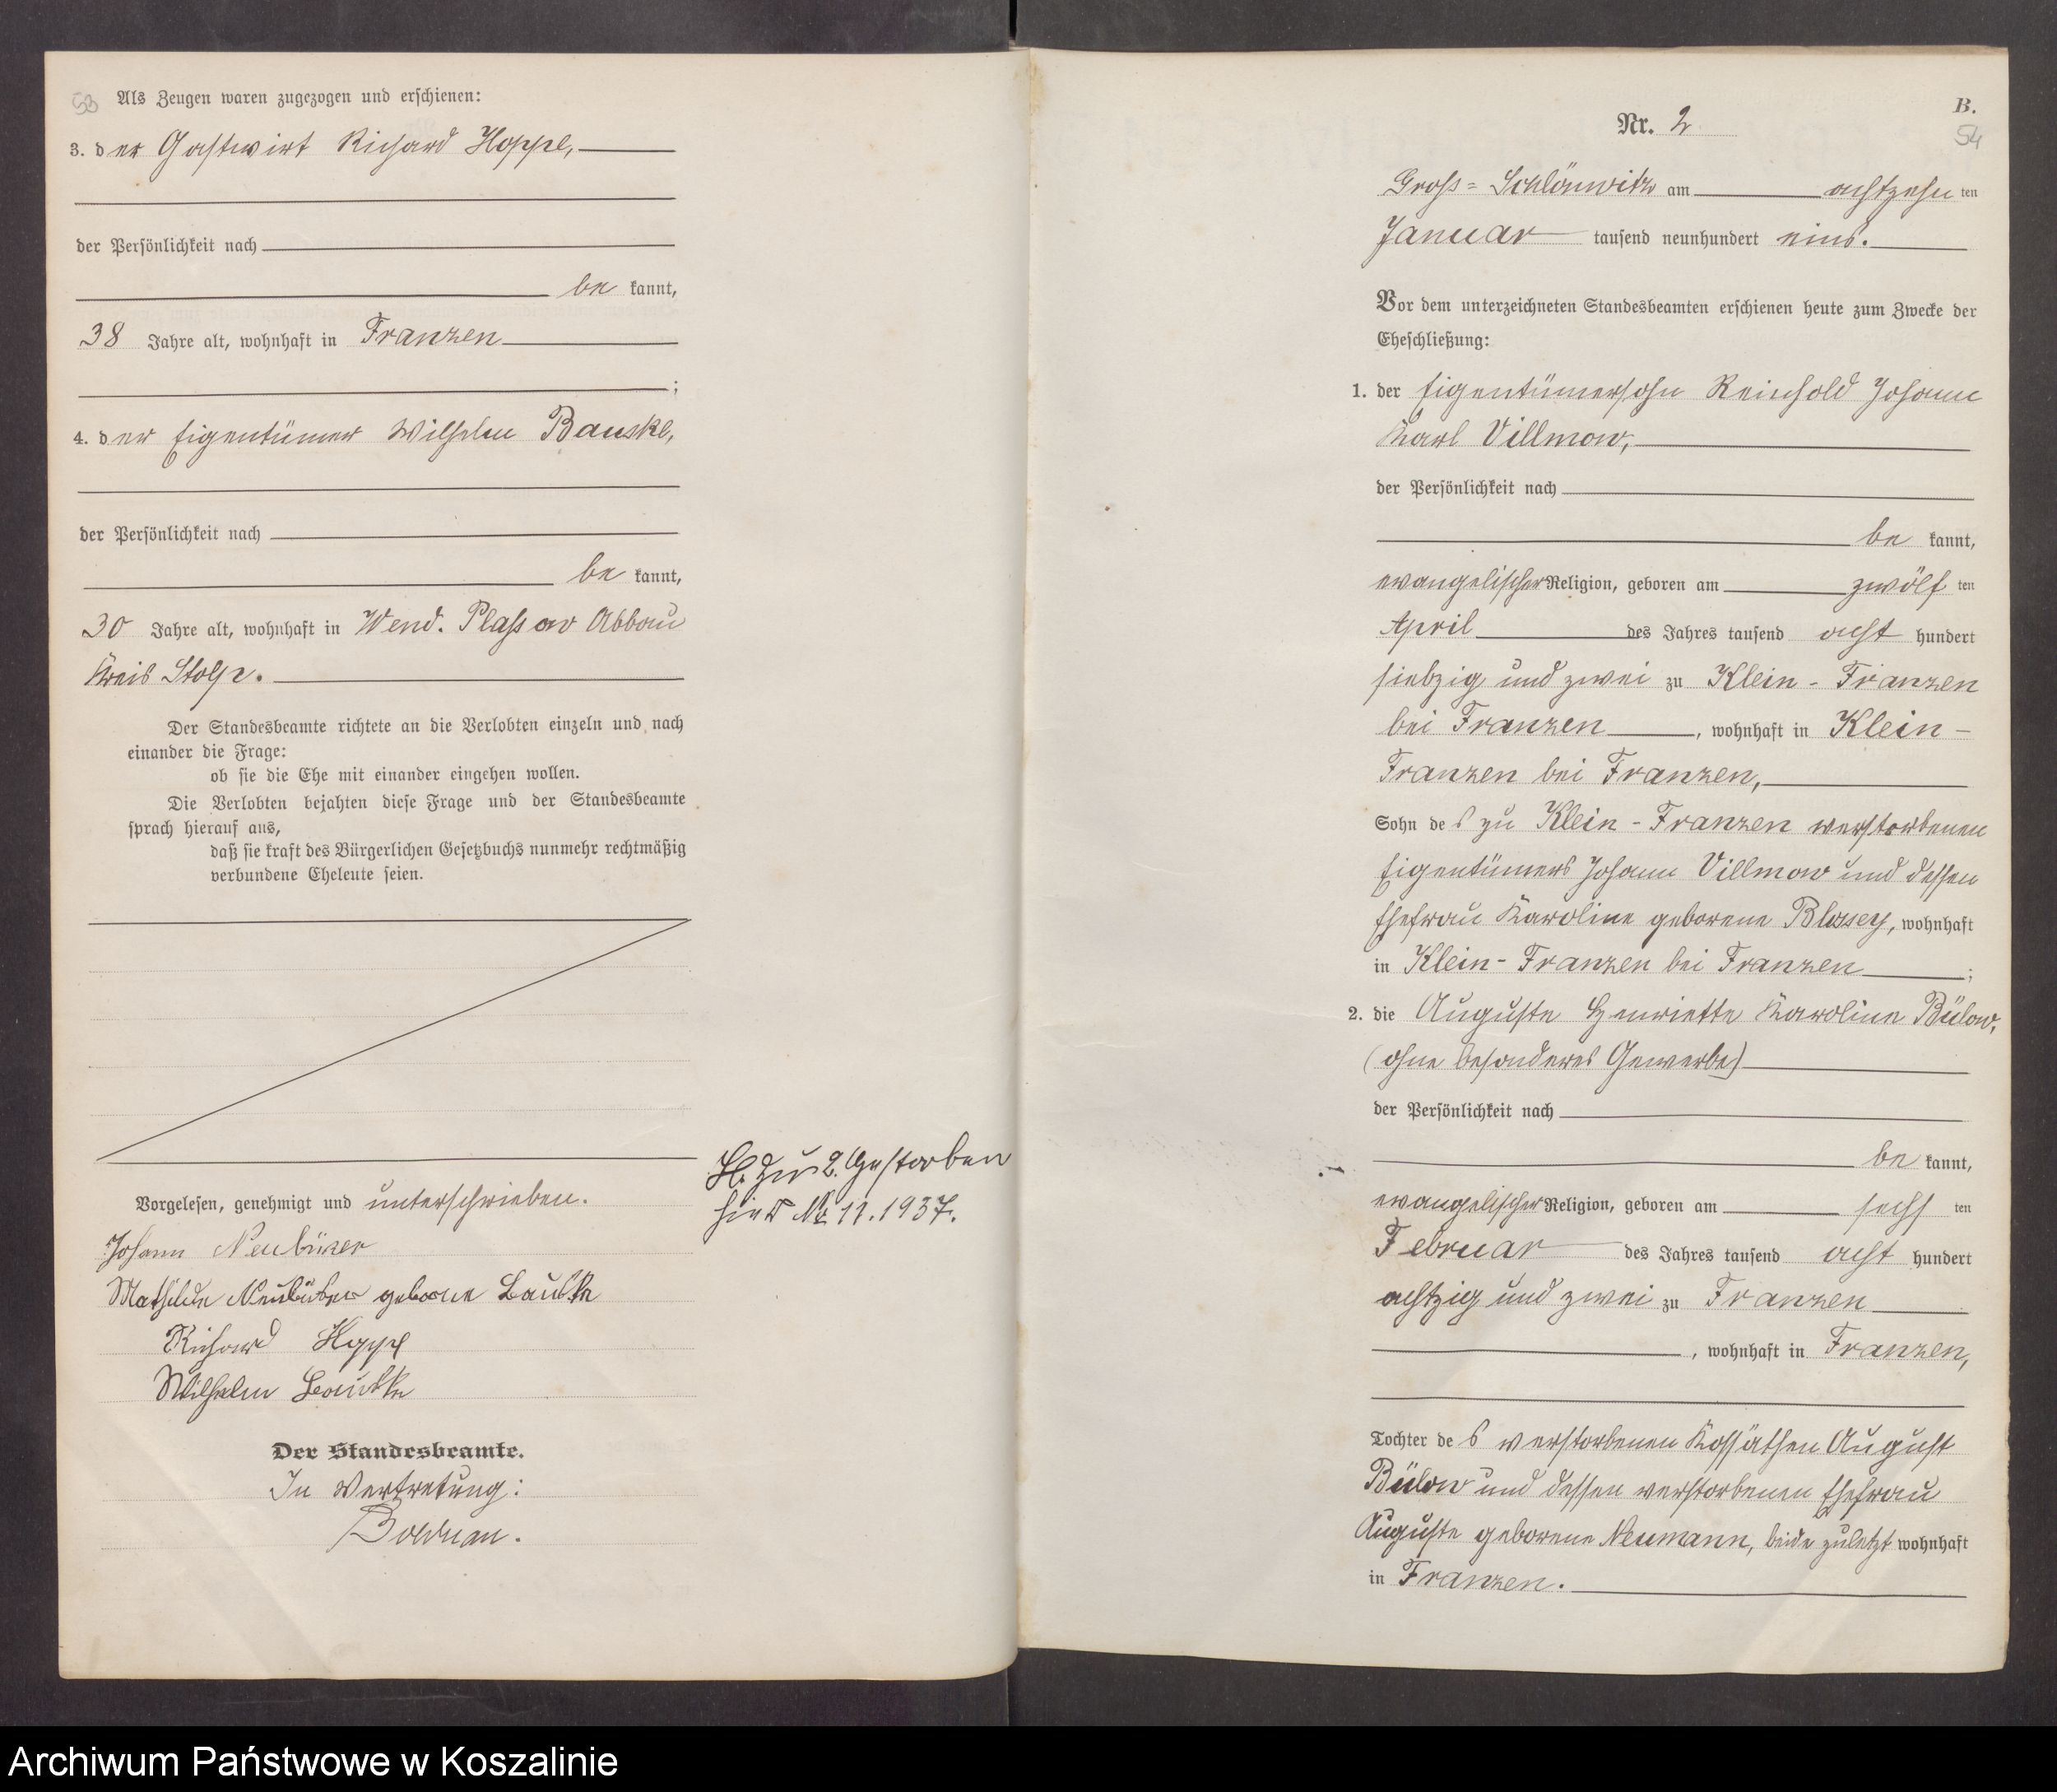 53
Als Zeugen waren zugezogen und erschienen:
3. der Gastwirt Richard Hoppe,
der Persönlichkeit nach
be kannt,
38 Jahre alt, wohnhaft in Franzen
;
4. der Eigentümer Wilhelm Bauske,
der Persönlichkeit nach
be kannt,
30 Jahre alt, wohnhaft in Wend. Plassow Abbau
Kreis Stolp.
Der Standesbeamte richtete an die Verlobten einzeln und nach
einander die Frage:
ob sie die Ehe mit einander eingehen wollen.
Die Verlobten bejahten diese Frage und der Standesbeamte
sprach hierauf aus,
daß sie kraft des Bürgerlichen Gesetzbuchs nunmehr rechtmäßig
verbundene Eheleute seien.
Vorgelesen, genehmigt und unterschrieben.
Johann Neubüser
Mathilde Neubüser geborne Bauske
Richard Hoppe
Wilhelm Bauske
Der Standesbeamte.
In Vertretung:
Bolduan.
zu 2. Gestorben
hier No 11. 1937.
B.
54
Nr. 2
Gross=Schlönwitz am achtzehn ten
Januar tausend neunhundert eins.
Vor dem unterzeichneten Standesbeamten erschienen heute zum Zwecke der
Eheschließung:
1. der Eigentümersohn Reinhold Johann
Karl Villmow,
der Persönlichkeit nach
be kannt,
evangelischer Religion, geboren am zwölf ten
April des Jahres tausend acht hundert
siebzig und zwei zu Klein-Franzen
bei Franzen, wohnhaft in Klein-
Franzen bei Franzen,
Sohn des zu Klein-Franzen verstorbenen
Eigentümers Johann Villmow und dessen
Ehefrau Karoline geborene Blasey, wohnhaft
in Klein-Franzen bei Franzen ;
2. die Auguste Henriette Karoline Bülow,
(ohne besonderes Gewerbe)
der Persönlichkeit nach
be kannt,
evangelischer Religion, geboren am sechs ten
Februar des Jahres tausend acht hundert
achtzig und zwei zu Franzen
, wohnhaft in Franzen,
Tochter des verstorbenen Kossäthen August
Bülow und dessen verstorbenen Ehefrau
Auguste geborene Neumann, beide zuletzt wohnhaft
in Franzen.
Archiwum Państwowe w Koszalinie